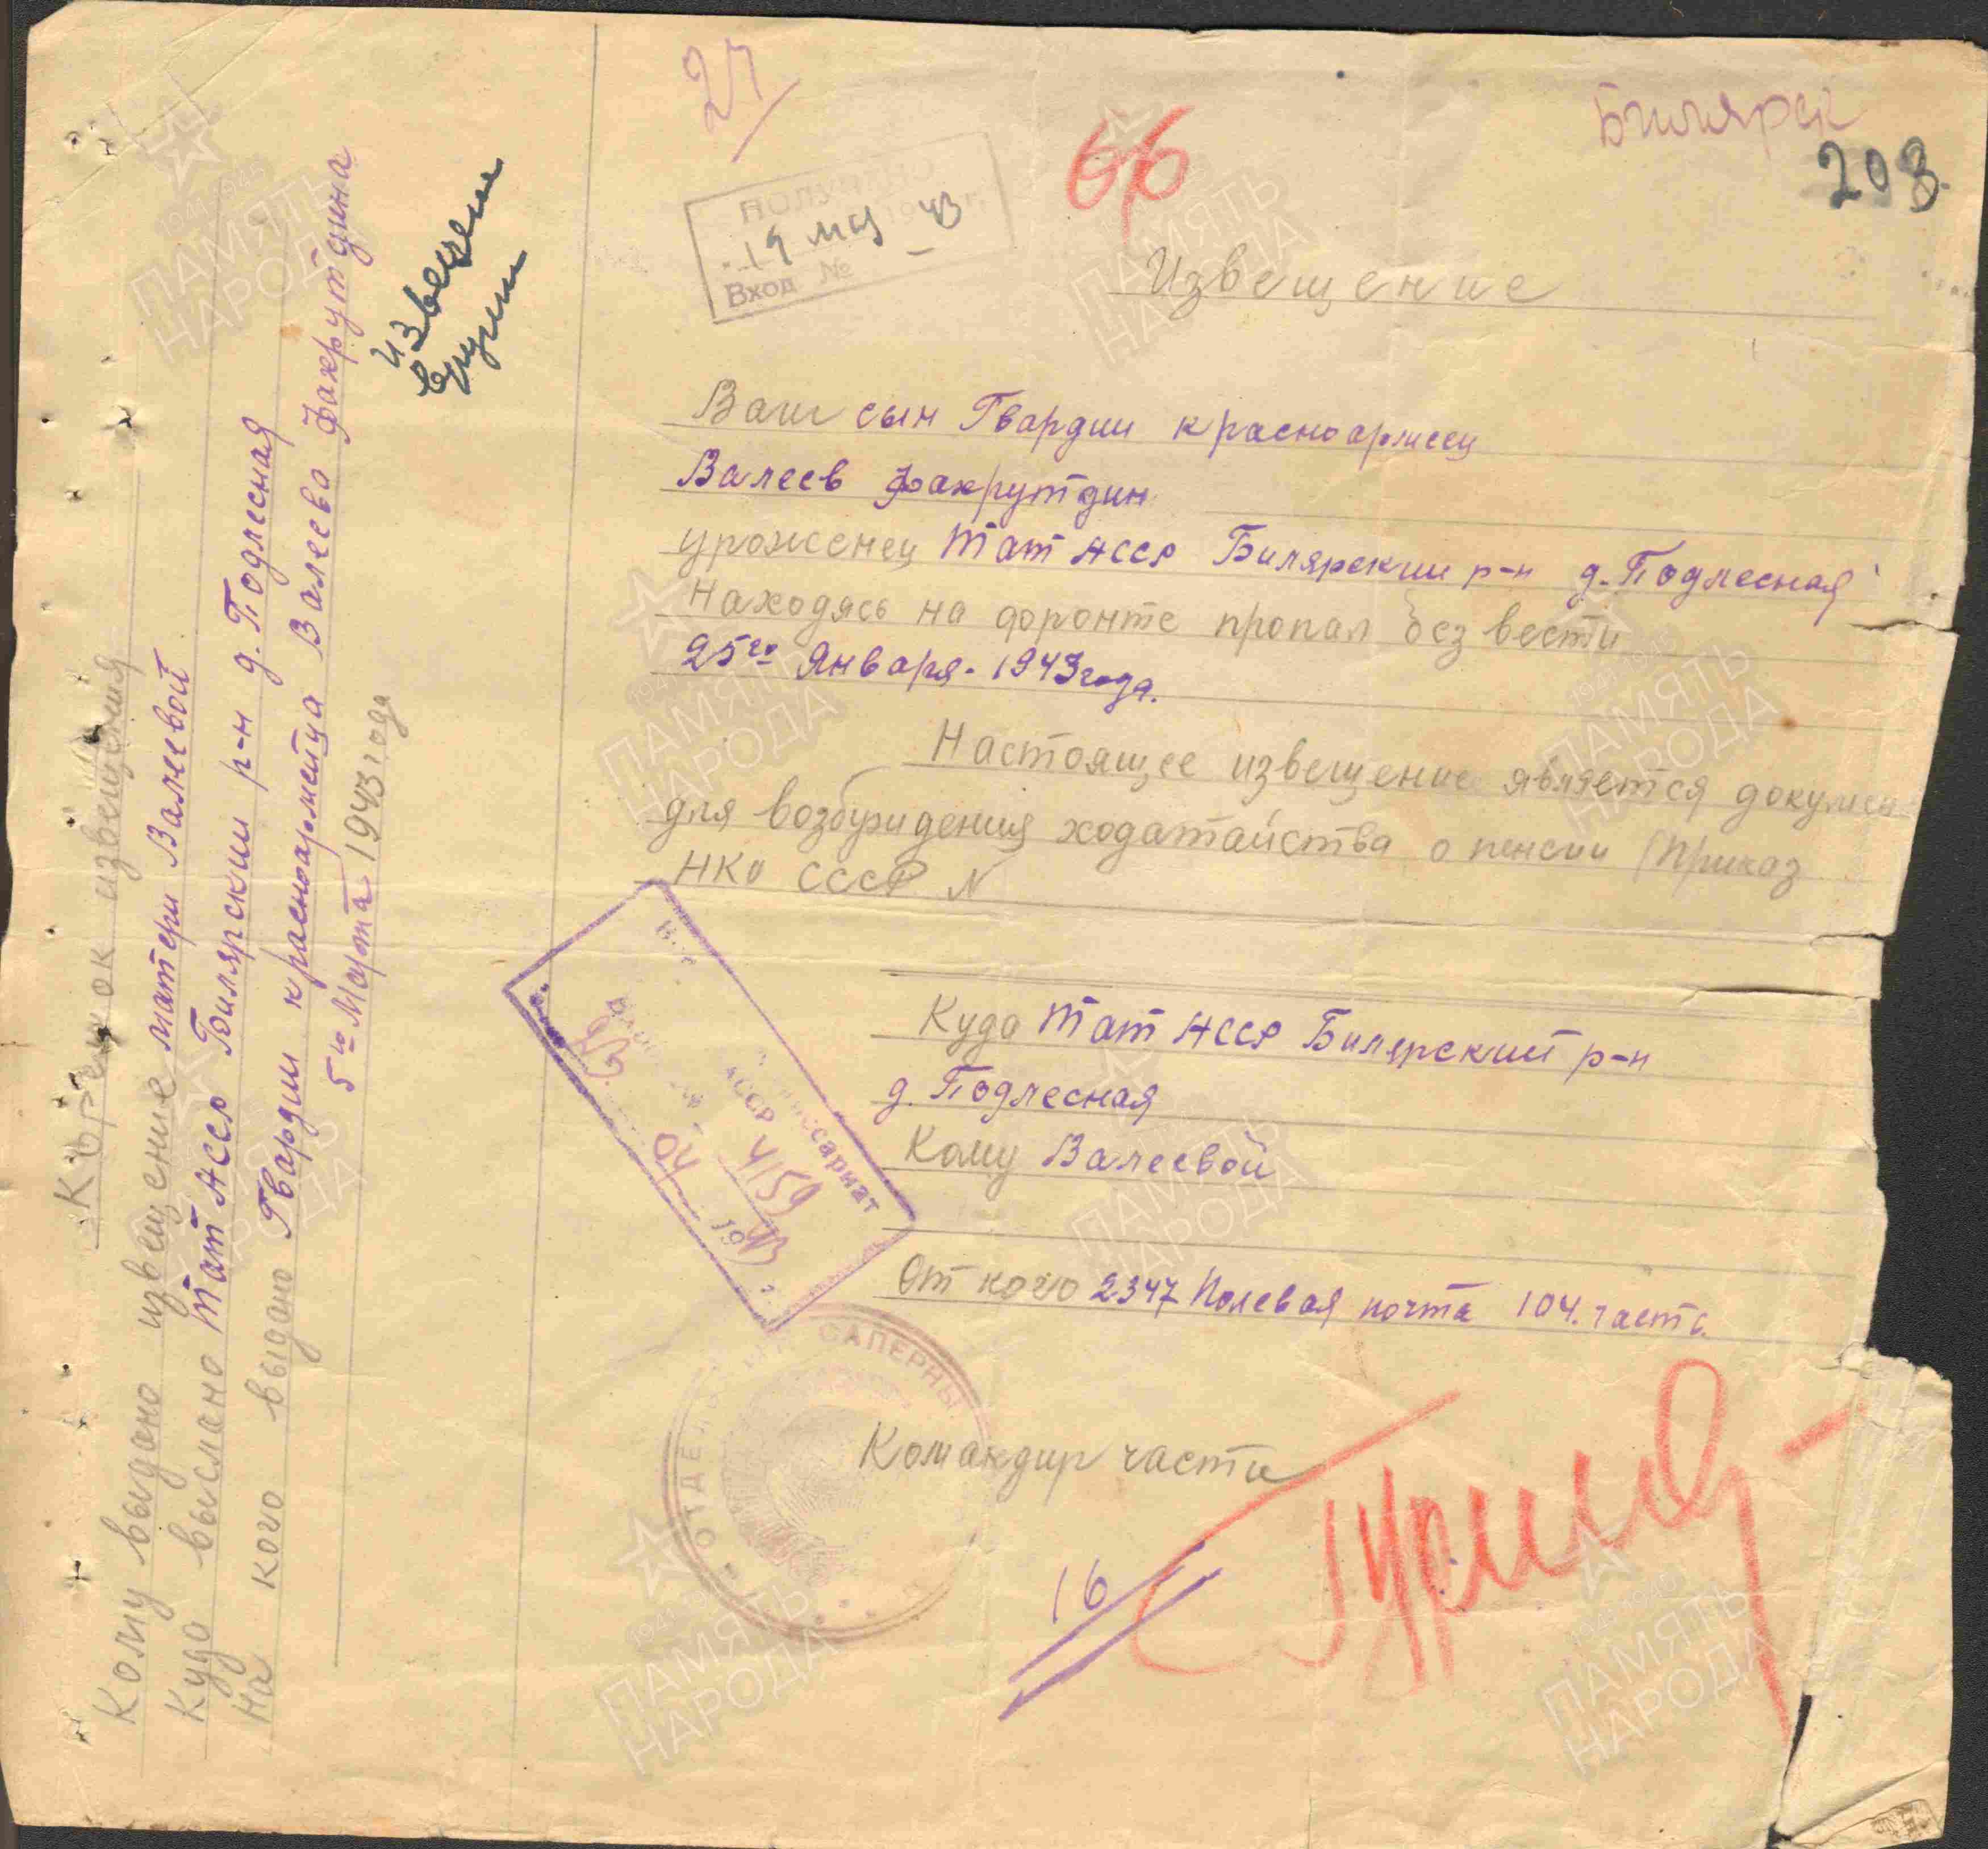 27
66
Билярск
203
ПОЛУЧЕНО
19 мая 43
Вход №
Извещение
Ваш сын Гвардии красноармеец
Валеев Фахрутдин
уроженец Тат АССР Билярский р-н д. Подлесная
Находясь на фронте пропал без вести
25го Января - 1943 года.
Настоящее извещение является докумен
для возбуждения ходатайства о пенсии (Приказ
НКО СССР N
Куда Тат АССР Билярский р-н
д. Подлесная
Кому Валеевой
От кого 2347 Полевая почта 104. часть
Командир части
16
АССР
4159
04 1943
САПЕРНЫ
ОТДЕЛЬ
Корешок извещения
Кому выдано извещение матери Валеевой
Куда выслано Тат АССР Билярский р-н д. Подлесная
На кого выдано Гвардии красноармейца Валеева Фахрутдина
5го Марта 1943 года
извещен
вручен
1941-1945
ПАМЯТЬ
НАРОДА